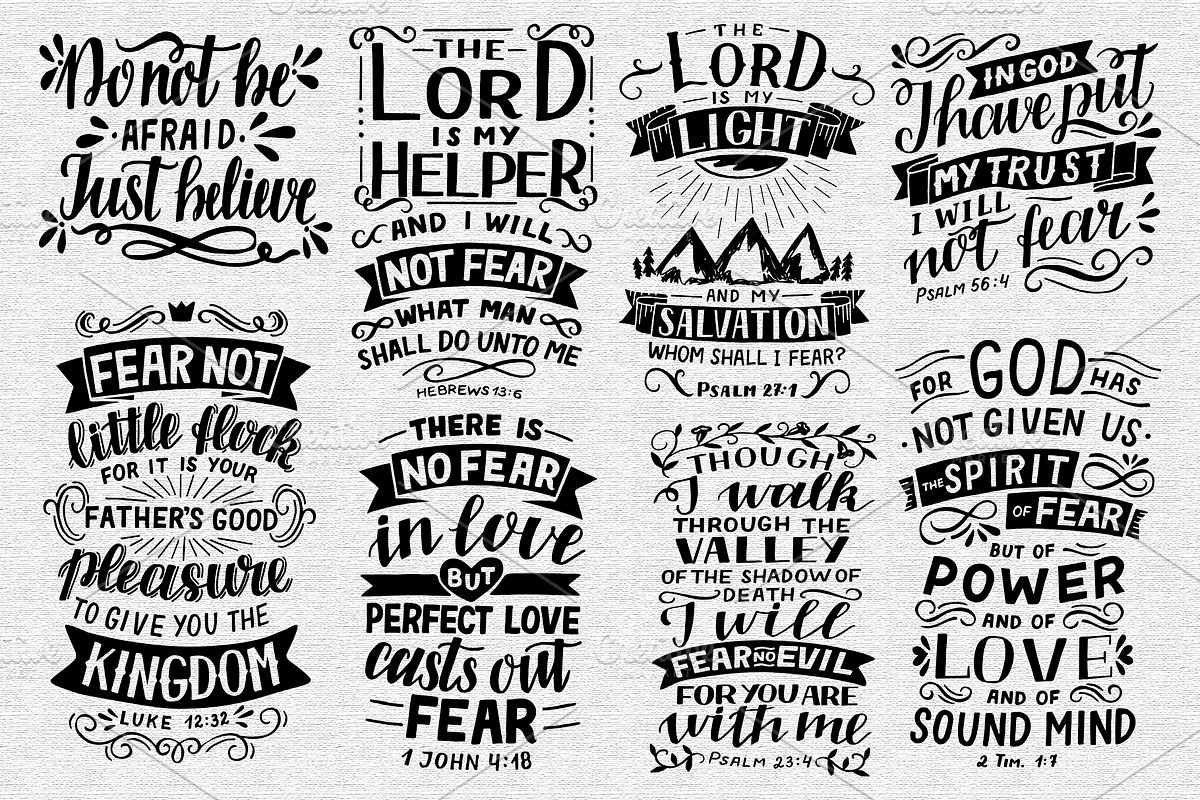 Do not be
AFRAID
Just believe
THE
LORD
IS MY
HELPER
AND I WILL
NOT FEAR
WHAT MAN
SHALL DO UNTO ME
HEBREWS 13:6
THE
LORD
IS MY
LIGHT
AND MY
SALVATION
WHOM SHALL I FEAR?
PSALM 27:1
IN GOD
I have put
MY TRUST
I WILL
not fear
PSALM 56:4
FEAR NOT
little flock
FOR IT IS YOUR
FATHER'S GOOD
pleasure
TO GIVE YOU THE
KINGDOM
LUKE 12:32
THERE IS
NO FEAR
in love
BUT
PERFECT LOVE
casts out
FEAR
1 JOHN 4:18
THOUGH
I walk
THROUGH THE
VALLEY
OF THE SHADOW OF
DEATH
I will
FEAR NO EVIL
FOR YOU ARE
with me
PSALM 23:4
FOR GOD HAS
NOT GIVEN US
THE SPIRIT
OF FEAR
BUT OF
POWER
AND OF
LOVE
AND OF
SOUND MIND
2 TIM. 1:7